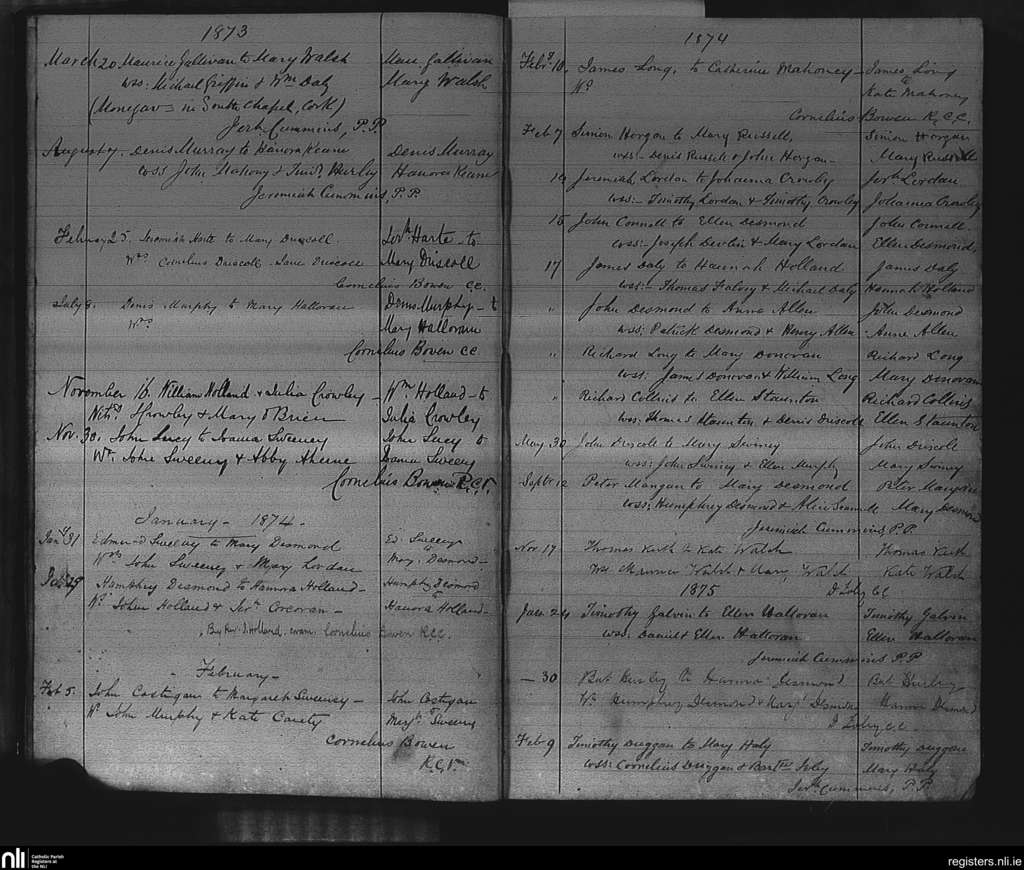 1873
March 20 Maurice Gallivan to Mary Walsh Mau. Gallivan
wss: Michael Griffin & Wm Daly Mary Walsh
(Monegav in South Chapel, Cork)
Jerh Cummins, P.P.
August 7. Denis Murray to Hanora Keane Denis Murray
wss John Mahony & Hurley Hanora Keane
Jeremiah Cummins, P.P.
February 25. Jeremiah Harte to Mary Driscoll. Jerh Harte to
Wss Cornelius Driscoll Jane Driscoll Mary Driscoll
Cornelius Bowen CC.
July 8. Denis Murphy to Mary Halloran Denis Murphy - to
Wss Mary Halloran
Cornelius Bowen CC
November 16. William Holland & Julia Crowley - Wm Holland - to
Crowley & Mary O'Brien Julia Crowley
Nov. 30. John Lucy to Joana Sweeney John Lucy to
Wt. John Sweeney & Abby Aherne Joana Sweeny
Cornelius Bowen R.C.C.
January - 1874 -
Jany 31 Edmund Sweeney to Mary Desmond Ed. Sweeny
Wss John Sweeney & Mary Lordan Mary Desmond -
29 Humphrey Desmond to Hanora Holland - Humphy Desmond to
Ws John Holland & Jerh Corcoran - Hanora Holland -
By Rev. J. Holland. coram Cornelius Bowen RCC.
February -
Feb 5. John Costigan to Margaret Sweeney - John Costigan to
Ws John Murphy & Kate Canty Margt Sweeny
Cornelius Bowen
R.C.C.
1874
Feby 10. James Long, to Catherine Mahoney - James Long
Ws to
Kate Mahoney
Cornelius Bowen R.C.C.
Feb 7 Simon Horgan to Mary Russell, Simon Horgan
wss:- Denis Russell & John Horgan - Mary Russell
Jeremiah Lordan to Johanna Crowley Jerh Lordan
wss:- Timothy Lordan & Timothy Crowley Johanna Crowley
15 John Connell to Ellen Desmond John Connell.
wss:- Joseph Devlin & Mary Lordan Ellen Desmond,
17 James Daly to Hannah Holland James Daly
wss:- Thomas Falvey & Michael Daly Hannah Holland
" John Desmond to Anne Allen John Desmond
wss: Patrick Desmond & Henry Allen Anne Allen
" Richard Long to Mary Donovan Richard Long
wss: James Donovan & William Long Mary Donovan
" Richard Collins to Ellen Staunton Richard Collins
wss: Thomas Staunton & Denis Driscoll Ellen Staunton
May 30 John Driscoll to Mary Swiney John Driscoll
wss: John Swiney & Ellen Murphy Mary Swiney
Septr 12 Peter Mangan to Mary Desmond Peter Mangan
wss; Humphrey Desmond & Mary Desmond
Jeremiah Cummins, P.P.
Nov 17 Thomas Keith to Kate Walsh Thomas Keith
Ws Maurice Walsh & Mary Walsh Kate Walsh
1875 D Foley CC
Jan. 24 Timothy Galvin to Ellen Halloran Timothy Galvin
wss: Daniel & Ellen Halloran Ellen Halloran
Jeremiah Cummins P.P
- 30 Bat Hurley to Hanna Desmond Bat Hurley
Ws Humphrey Desmond & Mary Desmond Hanna Desmond
D Foley CC
Feb 9 Timothy Duggan to Mary Haly Timothy Duggan
wss: Cornelius Duggan & Foley Mary Haly
Jerh Cummins, P.P.
nli
Catholic Parish
Registers at
the NLI
registers.nli.ie